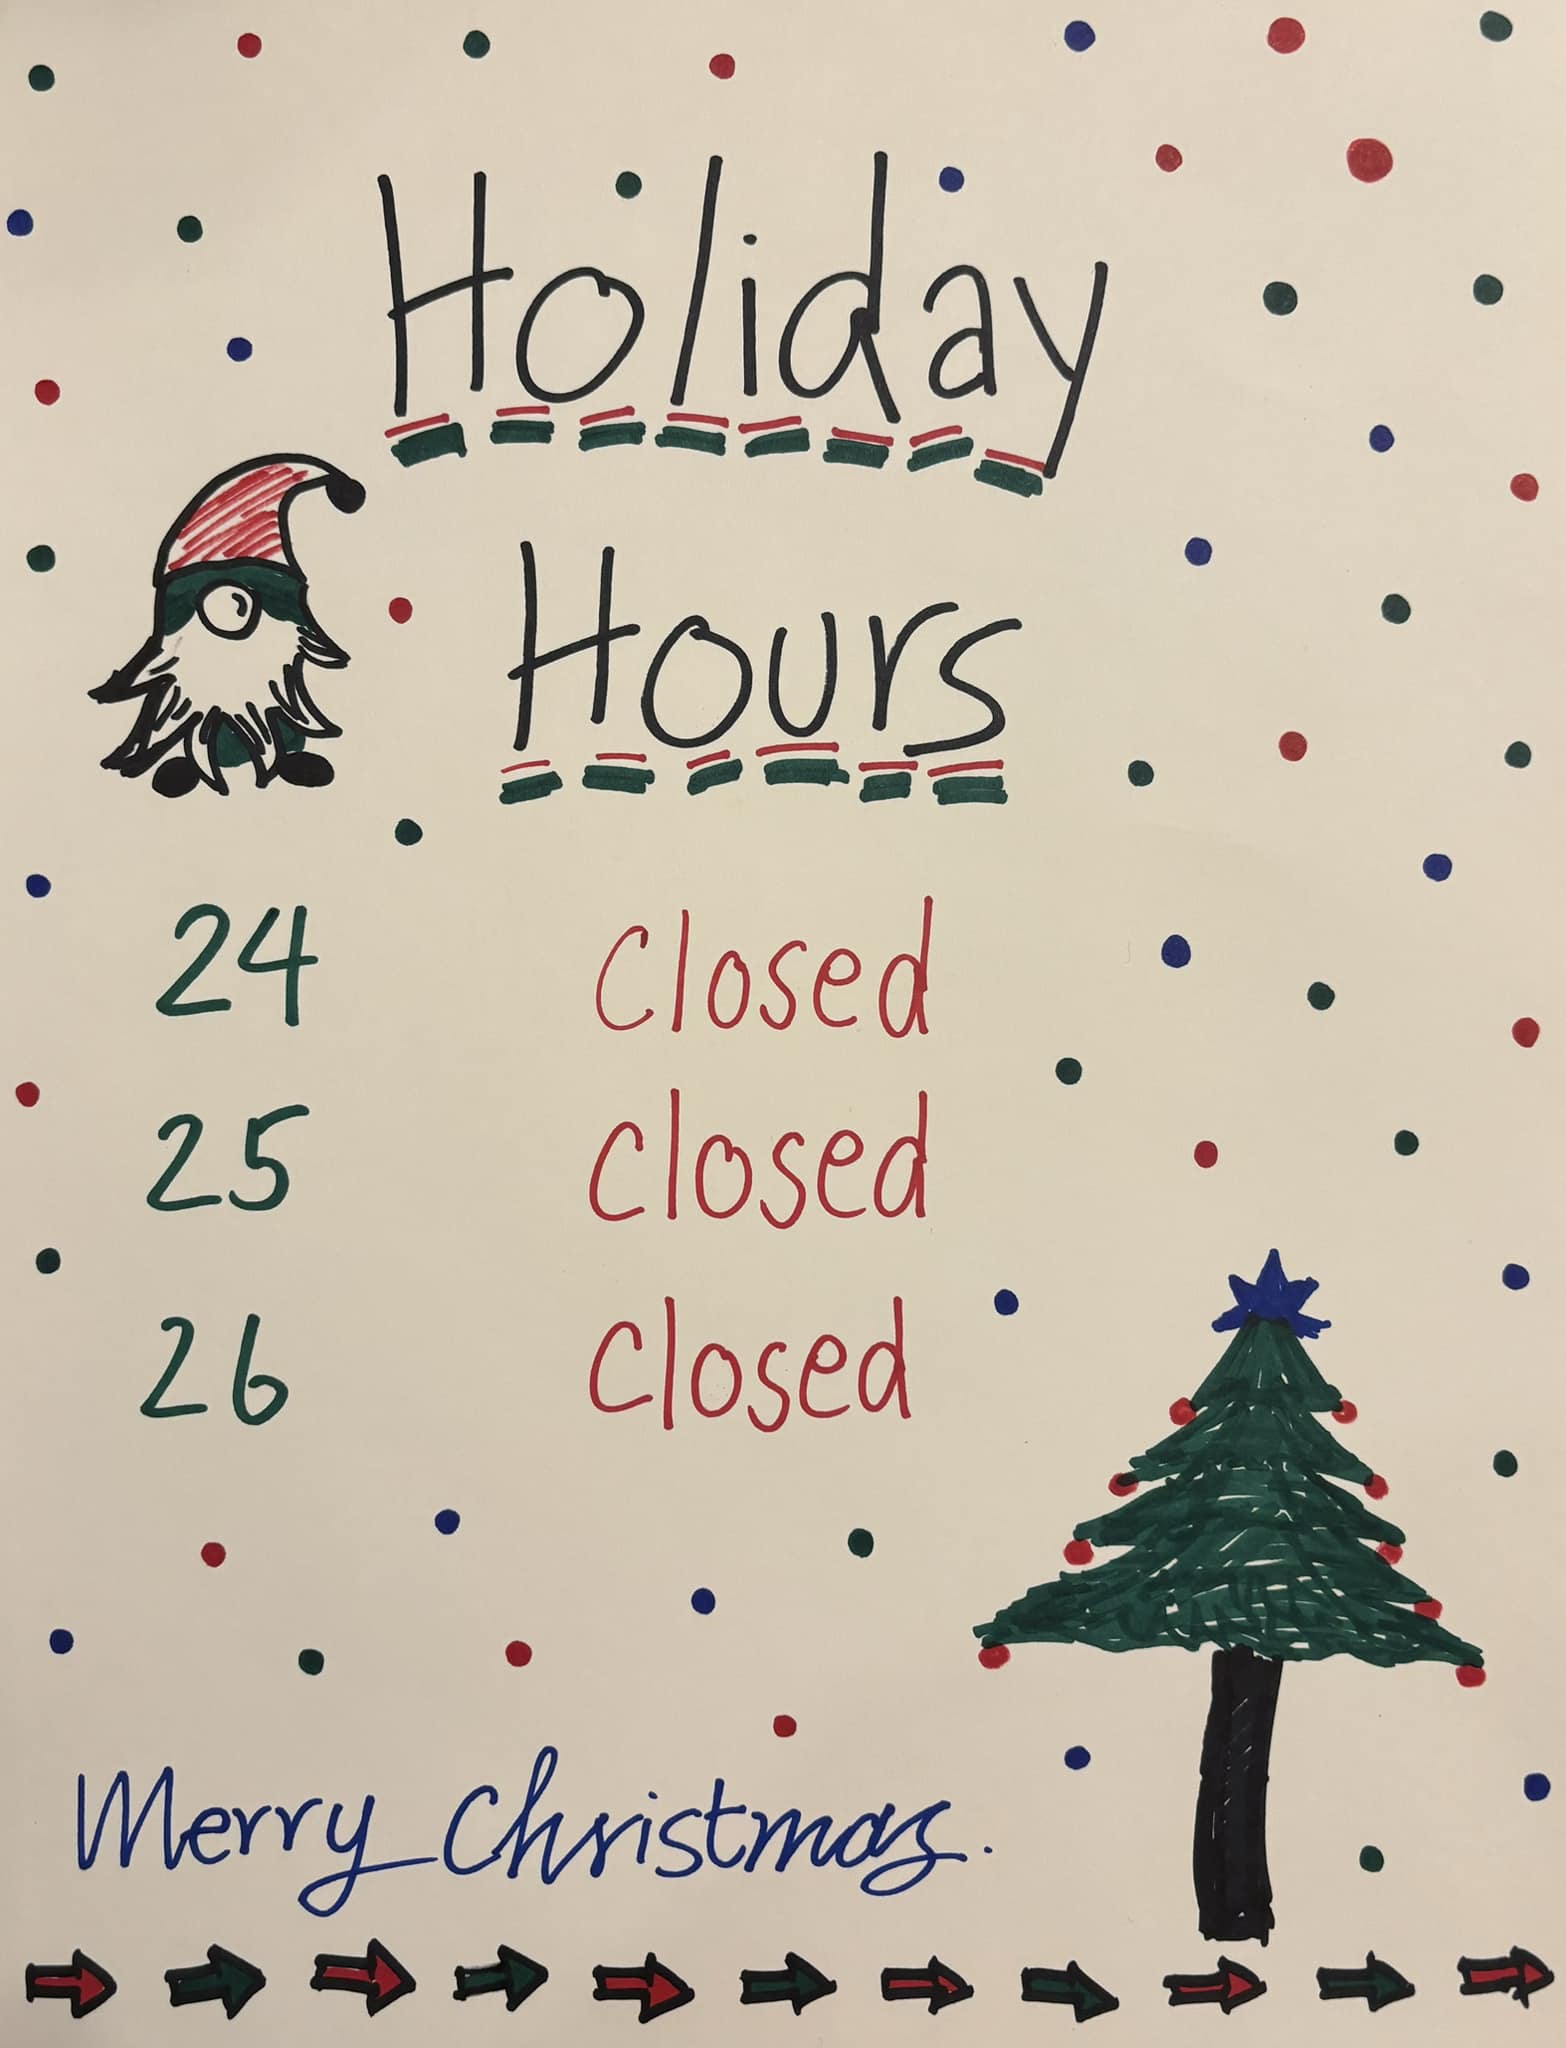 Holiday
Hours
24 Closed
25 Closed
26 Closed
Merry Christmas.